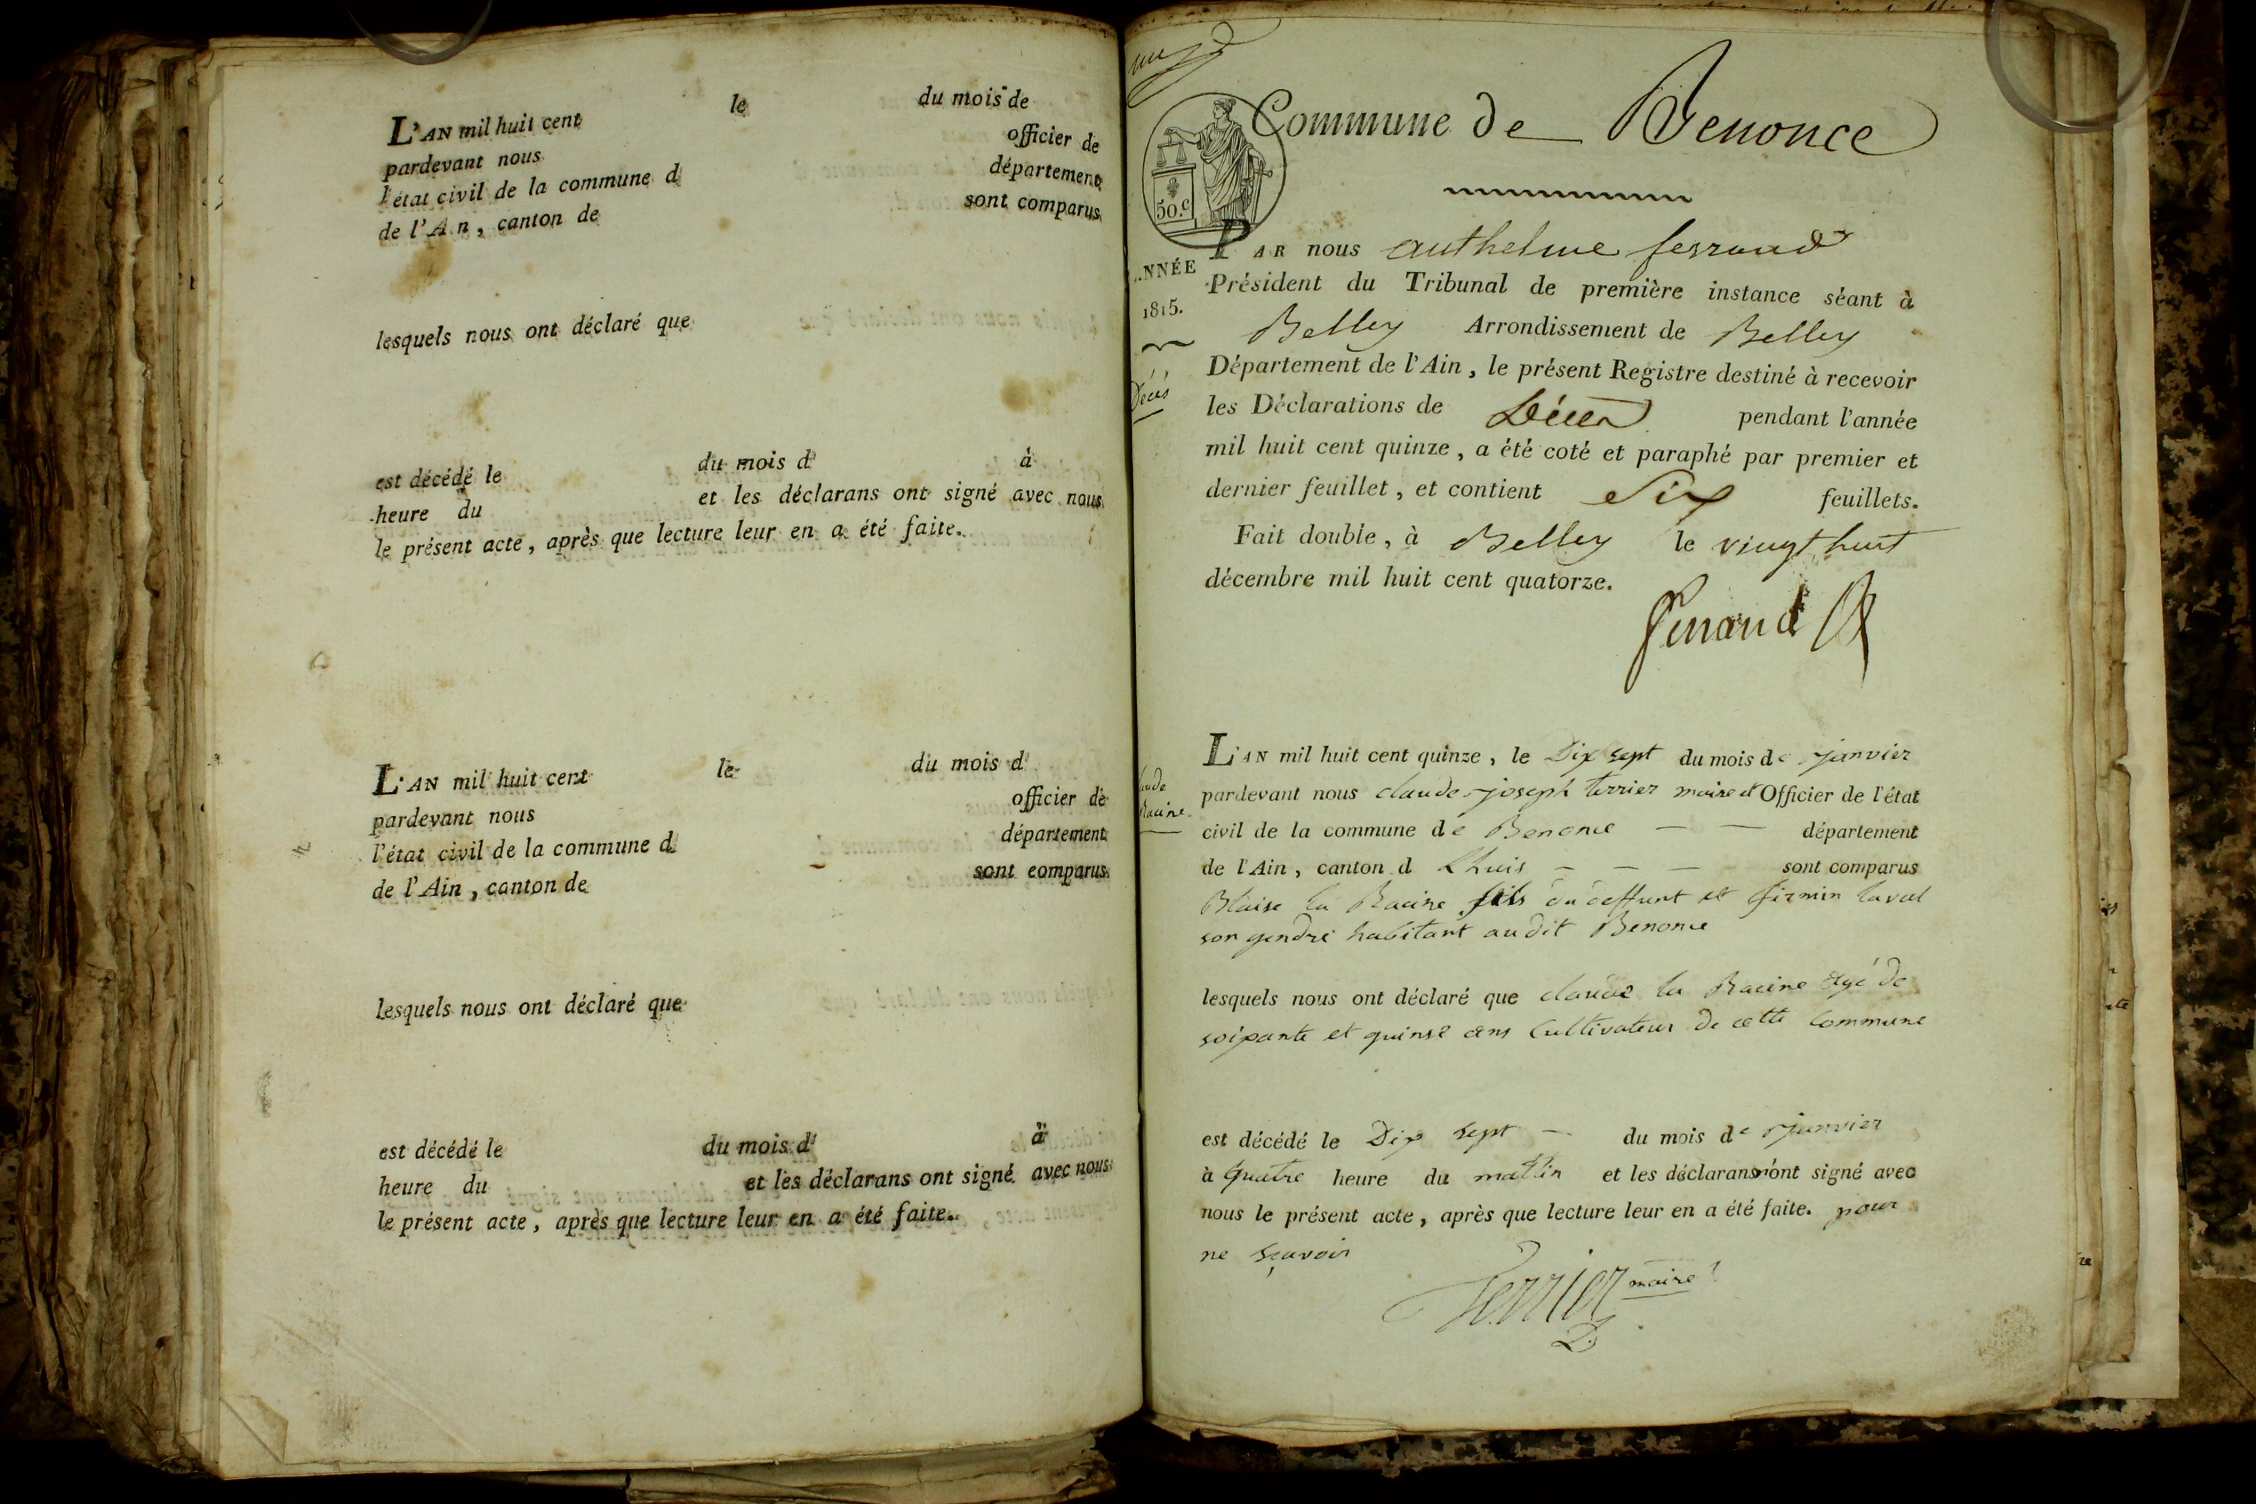 L'AN mil huit cent le du mois de
pardevant nous officier de
l'état civil de la commune d département
de l'Ain, canton de sont comparus
lesquels nous ont déclaré que
est décédé le du mois d à
heure du et les déclarans ont signé avec nous
le présent acte, après que lecture leur en a été faite.
L'AN mil huit cent le du mois d
pardevant nous officier de
l'état civil de la commune d département
de l'Ain, canton de sont comparus
lesquels nous ont déclaré que
est décédé le du mois d à
heure du et les déclarans ont signé avec nous
le présent acte, après que lecture leur en a été faite.
Commune de Benonce
50.c
PAR nous anthelme ferrand
Président du Tribunal de première instance séant à
Belley Arrondissement de Belley
Département de l'Ain, le présent Registre destiné à recevoir
les Déclarations de Décès pendant l'année
mil huit cent quinze, a été coté et paraphé par premier et
dernier feuillet, et contient Six feuillets.
Fait double, à Belley le vingt huit
décembre mil huit cent quatorze.
ferrand
NNÉE
1815.
Décès
L'AN mil huit cent quinze, le Dix sept du mois de janvier
pardevant nous claude joseph terrier maire et Officier de l'état
civil de la commune de Benonce département
de l'Ain, canton d Lhuis sont comparus
Blaise la Racine fils du deffunt et firmin laval
son gendre habitant audit Benonce
lesquels nous ont déclaré que claude la Racine agé de
soixante et quinse ans Cultivateur de cette commune
est décédé le Dix sept du mois de janvier
à quatre heure du mattin et les déclarans n'ont signé avec
nous le présent acte, après que lecture leur en a été faite. pour
ne sçavoir
Terrier maire
aude
Racine